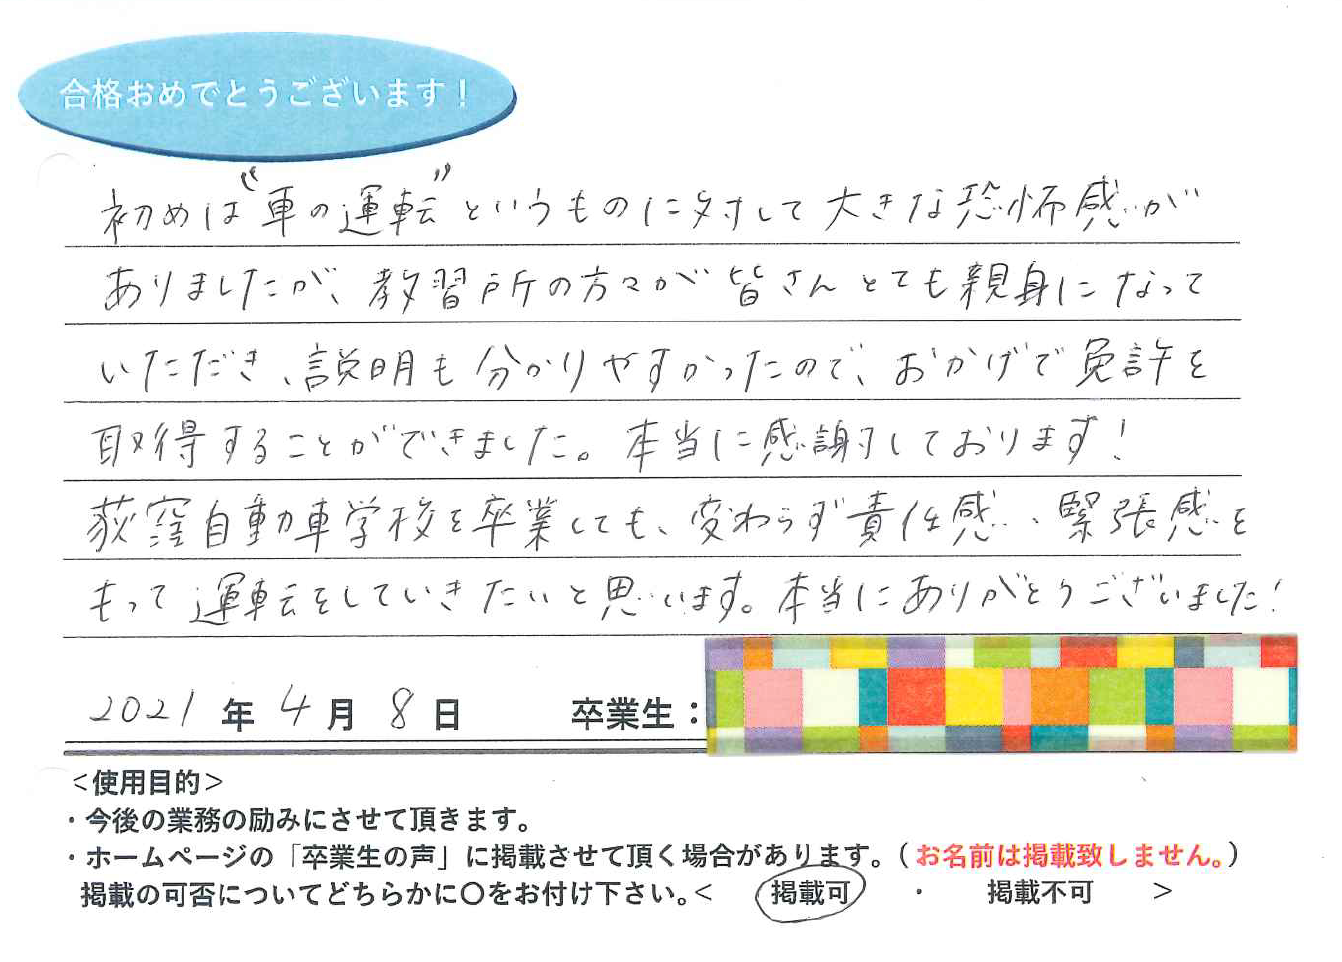 合格おめでとうございます！
初めは“車の運転”というものに対して大きな恐怖感が
ありましたが、教習所の方々が皆さんとても親身になって
いただき、説明も分かりやすかったので、おかげで免許を
取得することができました。本当に感謝しております！
荻窪自動車学校を卒業しても、変わらず責任感、緊張感を
もって運転をしていきたいと思います。本当にありがとうございました！
2021年4月8日 卒業生：
＜使用目的＞
・今後の業務の励みにさせて頂きます。
・ホームページの「卒業生の声」に掲載させて頂く場合があります。（お名前は掲載致しません。）
掲載の可否についてどちらかに〇をお付け下さい。＜ 掲載可 ・ 掲載不可 ＞